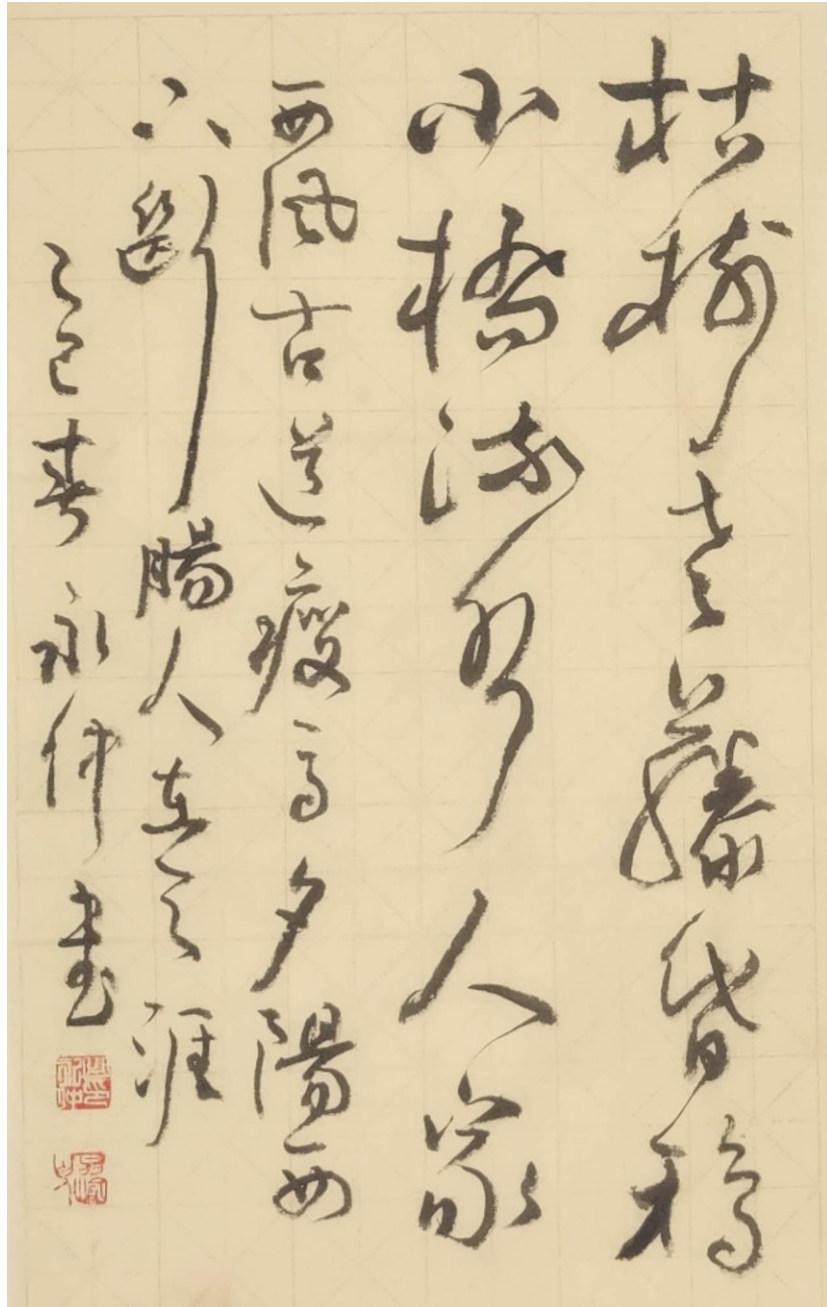 枯樹老藤昏鴉
小橋流水人家
西風古道瘦馬夕陽西
下斷腸人在天涯
乙巳春永仲書